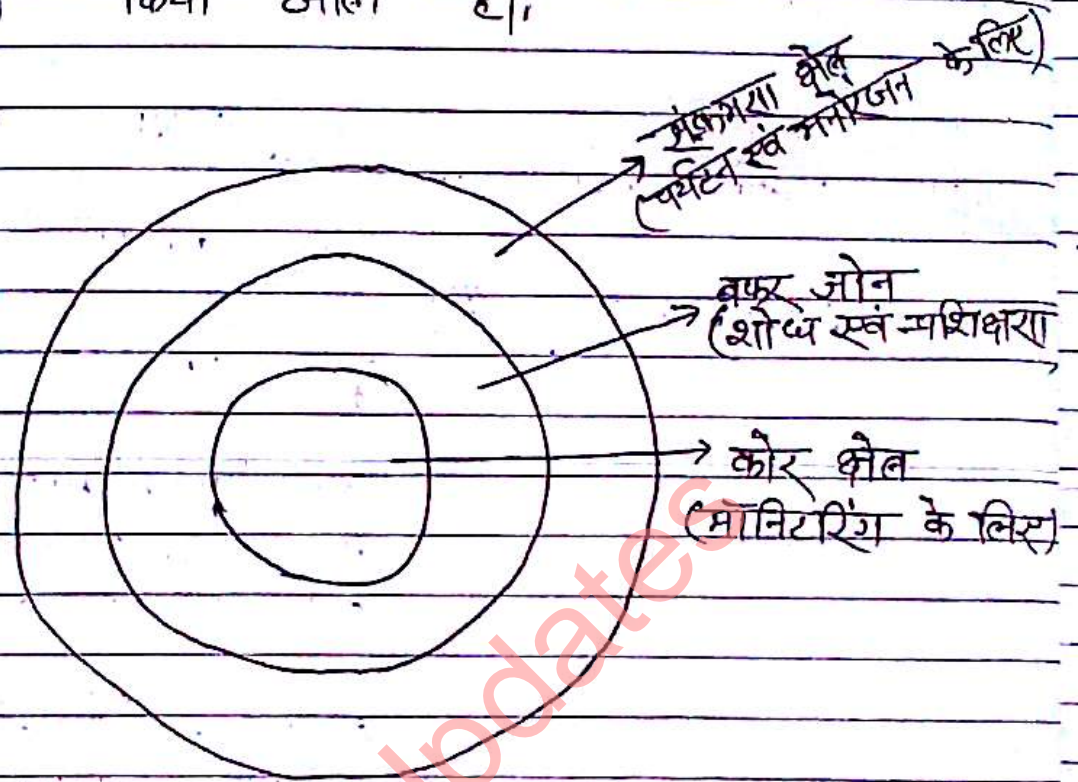 किया जाता है।
संक्रमण क्षेत्र
(पर्यटन एवं मनोरंजन के लिए)
बफर जोन
(शोध एवं प्रशिक्षण
कोर क्षेत्र
(मॉनिटरिंग के लिए)
pdates